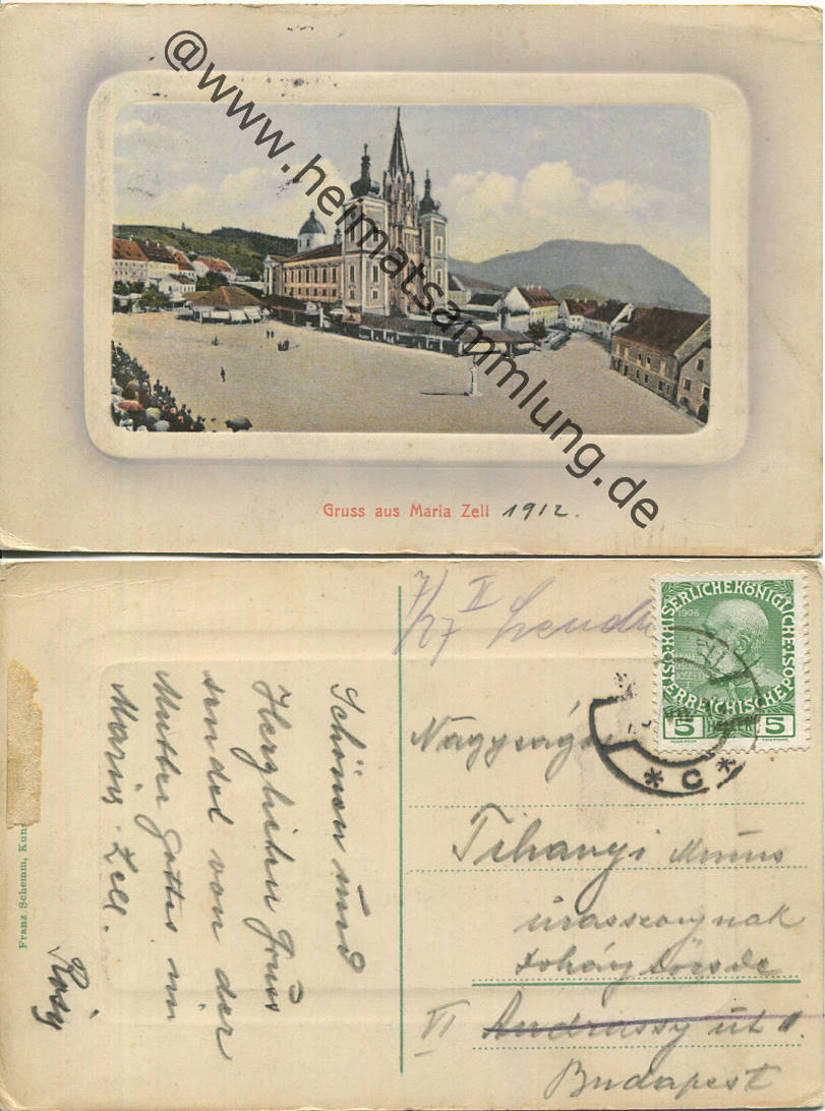 @www.heimatsammlung.de
Gruss aus Maria Zell 1912.
7/27 II
KAISERLICHE KÖNIGLICHE
ÖSTERREICHISCHE POST
1908
5 5
* C *
Schönen und
Herzlichen Gruss
sendet von der
Mutter Gottes in
Maria-Zell.
Rosy
Franz Schemm, Kuns
Nagyságos
Tihanyi
úrasszonynak
VI Andrássy út
Budapest